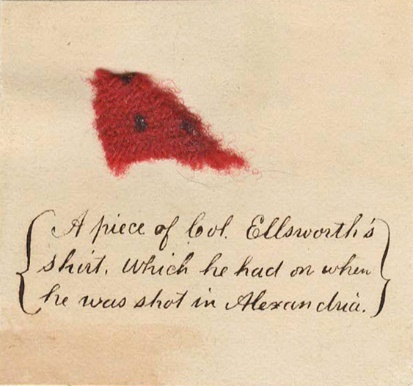 A piece of Col. Ellsworth's
shirt, which he had on when
he was shot in Alexandria.